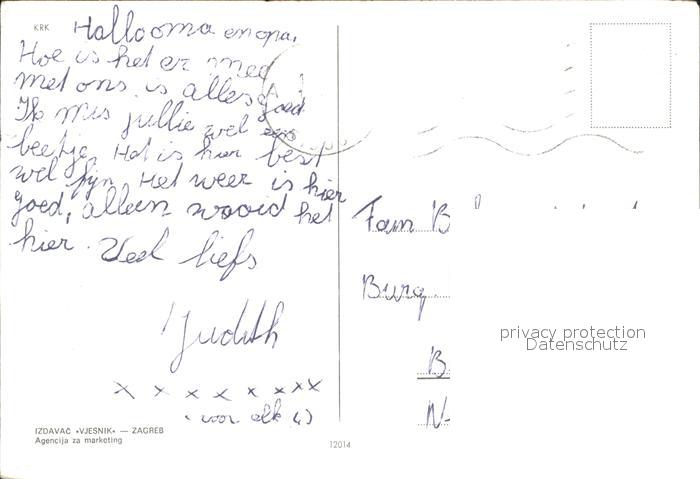 KRK
Hallo oma en opa.
Hoe is het er mee
met ons is alles goed
Ik mis jullie wel een
beetje. Het is hier best
wel fijn. Het weer is hier
goed, alleen waaid het
hier. Veel liefs
Judith
x x x x x x x x
voor elk 4)
Fam B
Burg
B
N-
privacy protection
Datenschutz
IZDAVAČ «VJESNIK» — ZAGREB
Agencija za marketing
12014